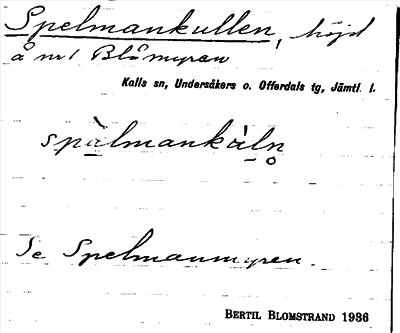 Spelmankullen, höjd
å nr 1 Blåmyren
Kalls sn, Undersåkers o. Offerdals tg, Jämtl. l.
spàlmankàln̥
Se Spelmanmyren.
BERTIL BLOMSTRAND 1936